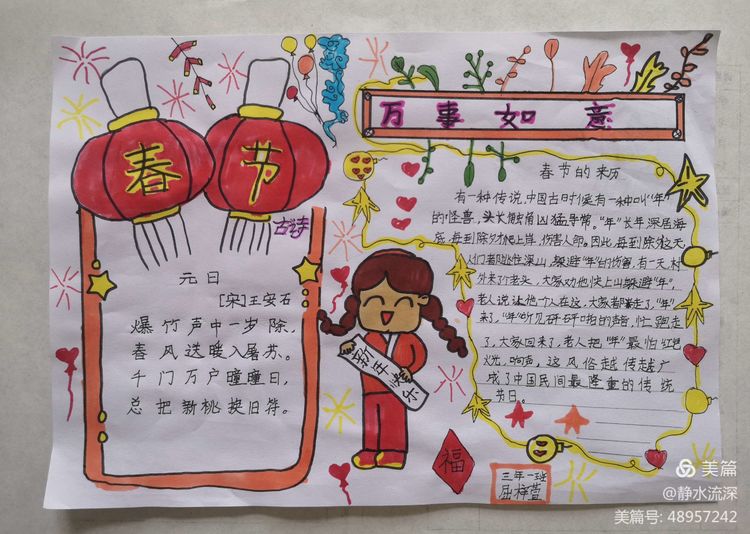 春节
古诗
元日
[宋]王安石
爆竹声中一岁除，
春风送暖入屠苏。
千门万户曈曈日，
总把新桃换旧符。
万事如意
春节的来历
有一种传说，中国古时候有一种叫“年”
的怪兽，头长触角凶猛异常。“年”长年深居海
底，每到除夕才爬上岸，伤害人命。因此，每到除夕这天，
人们都逃往深山，躲避“年”的伤害，有一天，村
外来了个老头，大家劝他快上山躲避“年”，
老人说让他一个人在这，大家都躲走了，“年”
来了，“年”听见砰砰啪啪的声音，忙跑走
了，大家回来了，老人把“年”最怕红色，
火光，响声，这风俗越传越广
成了中国民间最隆重的传统
节日。
新年快乐
福
三年一班
屈梓萱
美篇
@静水流深
美篇号: 48957242